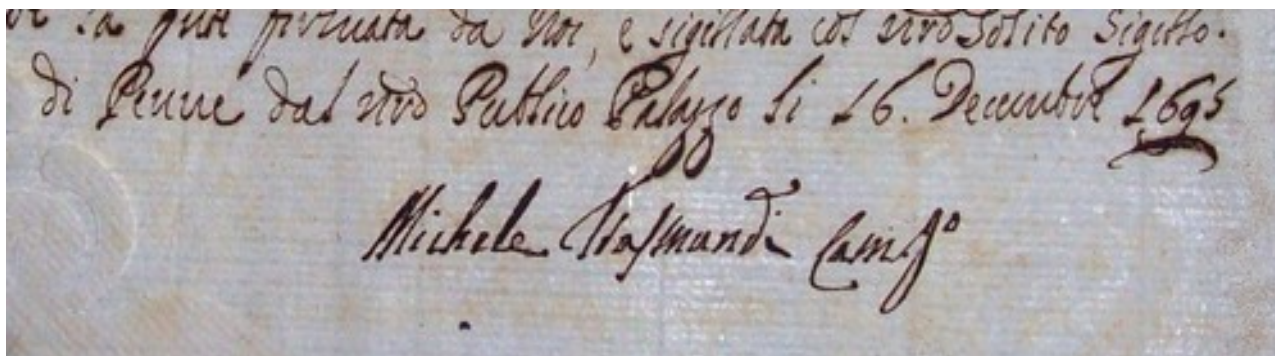 la pnte firmata da Noi, e sigillata col nrõ Solito Sigillo.
di Penne dal nrõ Publico Palazzo li 16. Decembre 1695
Michele Camgo